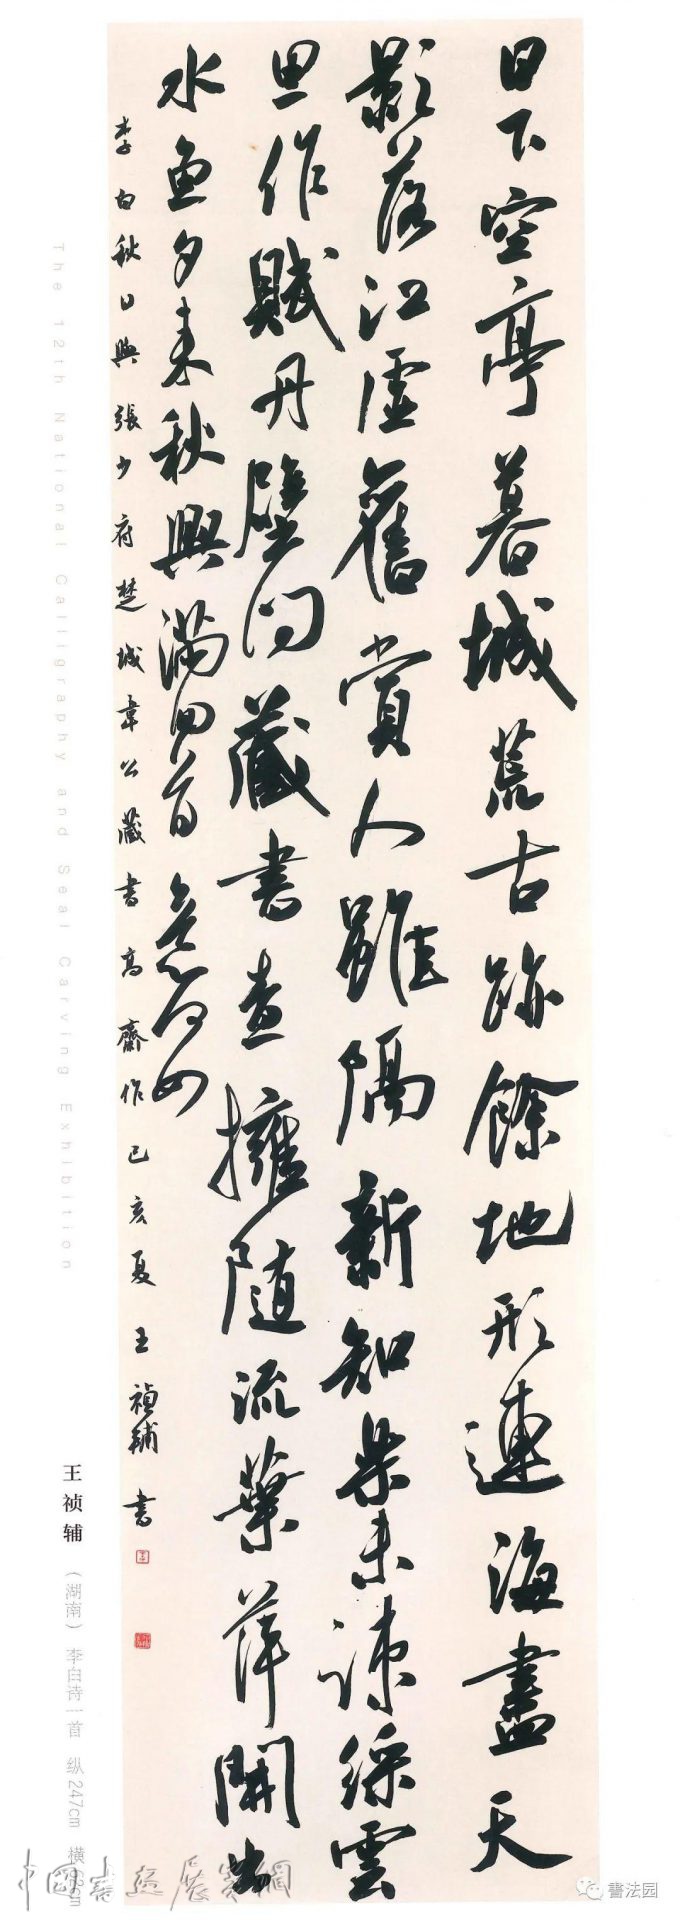 日下空亭暮城荒古跡餘地形連海盡天
影落江虛舊賞人雖隔新知樂未疎綵雲
思作賦丹壁間藏書查擁隨流葉萍開出
水魚夕來秋興滿回首意何如
李白秋日與張少府楚城韋公藏書高齋作己亥夏王禎輔書
The 12th National Calligraphy and Seal Carving Exhibition
王祯辅 （湖南） 李白诗一首 纵247cm 横
中國書畫展賽網
書法园